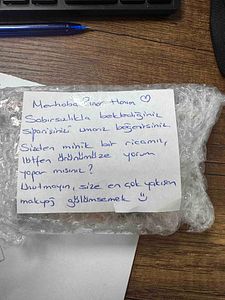 Merhaba Pınar Hanım ♡
Sabırsızlıkla beklediğiniz
siparişinizi umarız beğenirsiniz.
Sizden minik bir ricamız,
lütfen ürünümüze yorum
yapar mısınız?
Unutmayın, size en çok yakışan
makyaj gülümsemek ☺